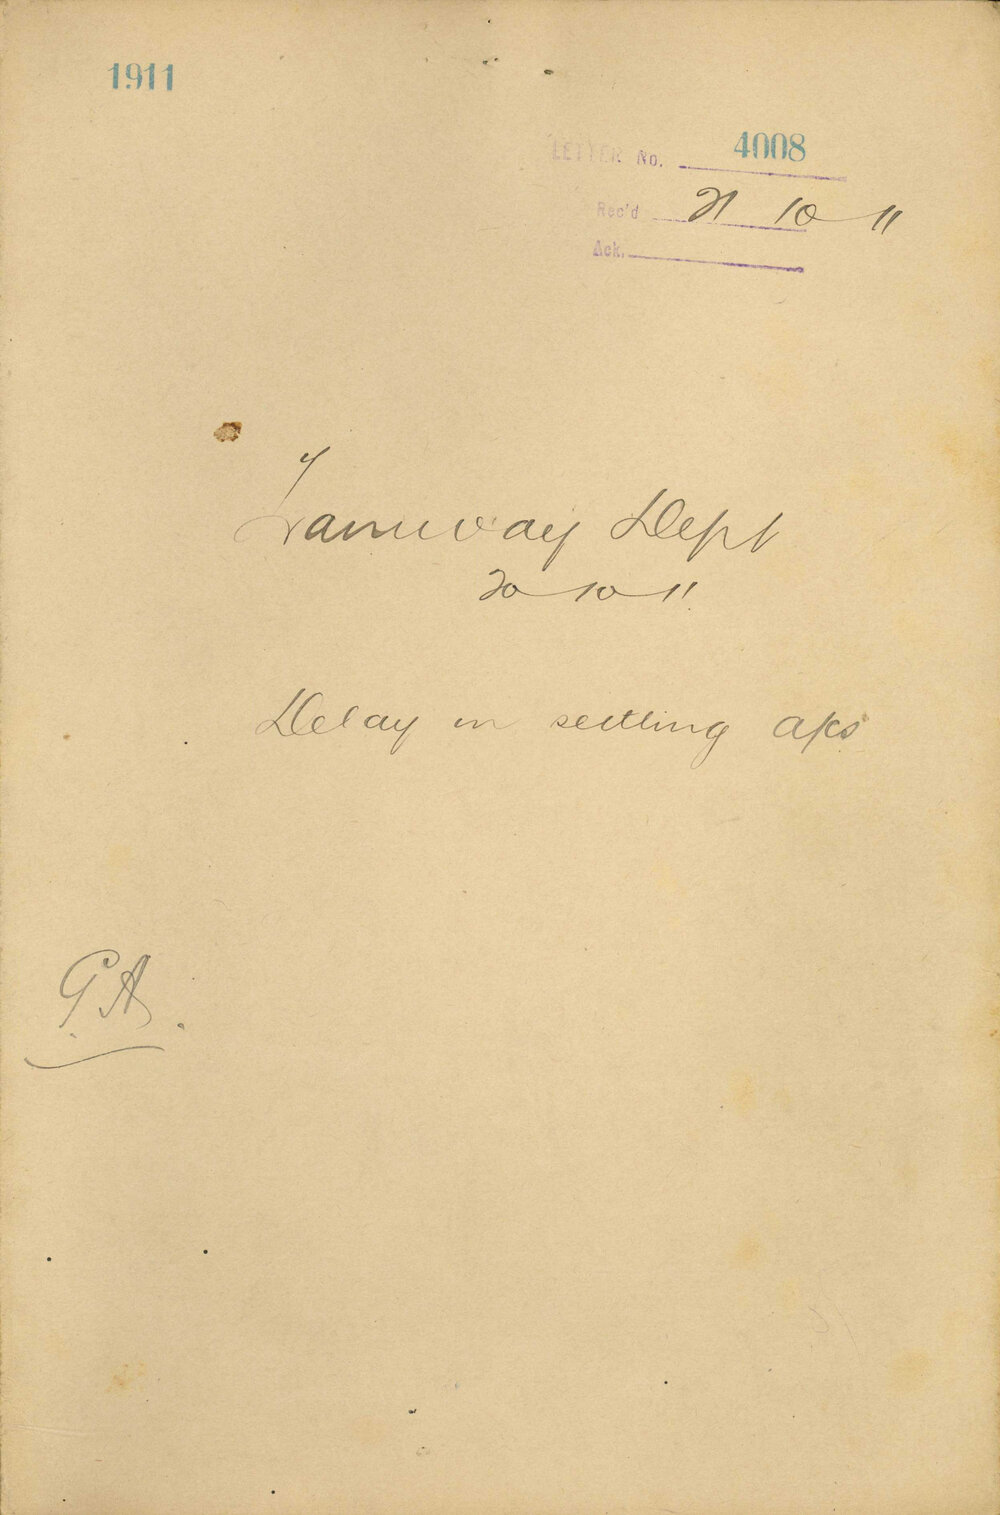 1911
LETTER No. 4008
Rec'd 21 10 11
Ack.
Tramway Dept
20 10 11
Delay in settling a/cs
G.A.